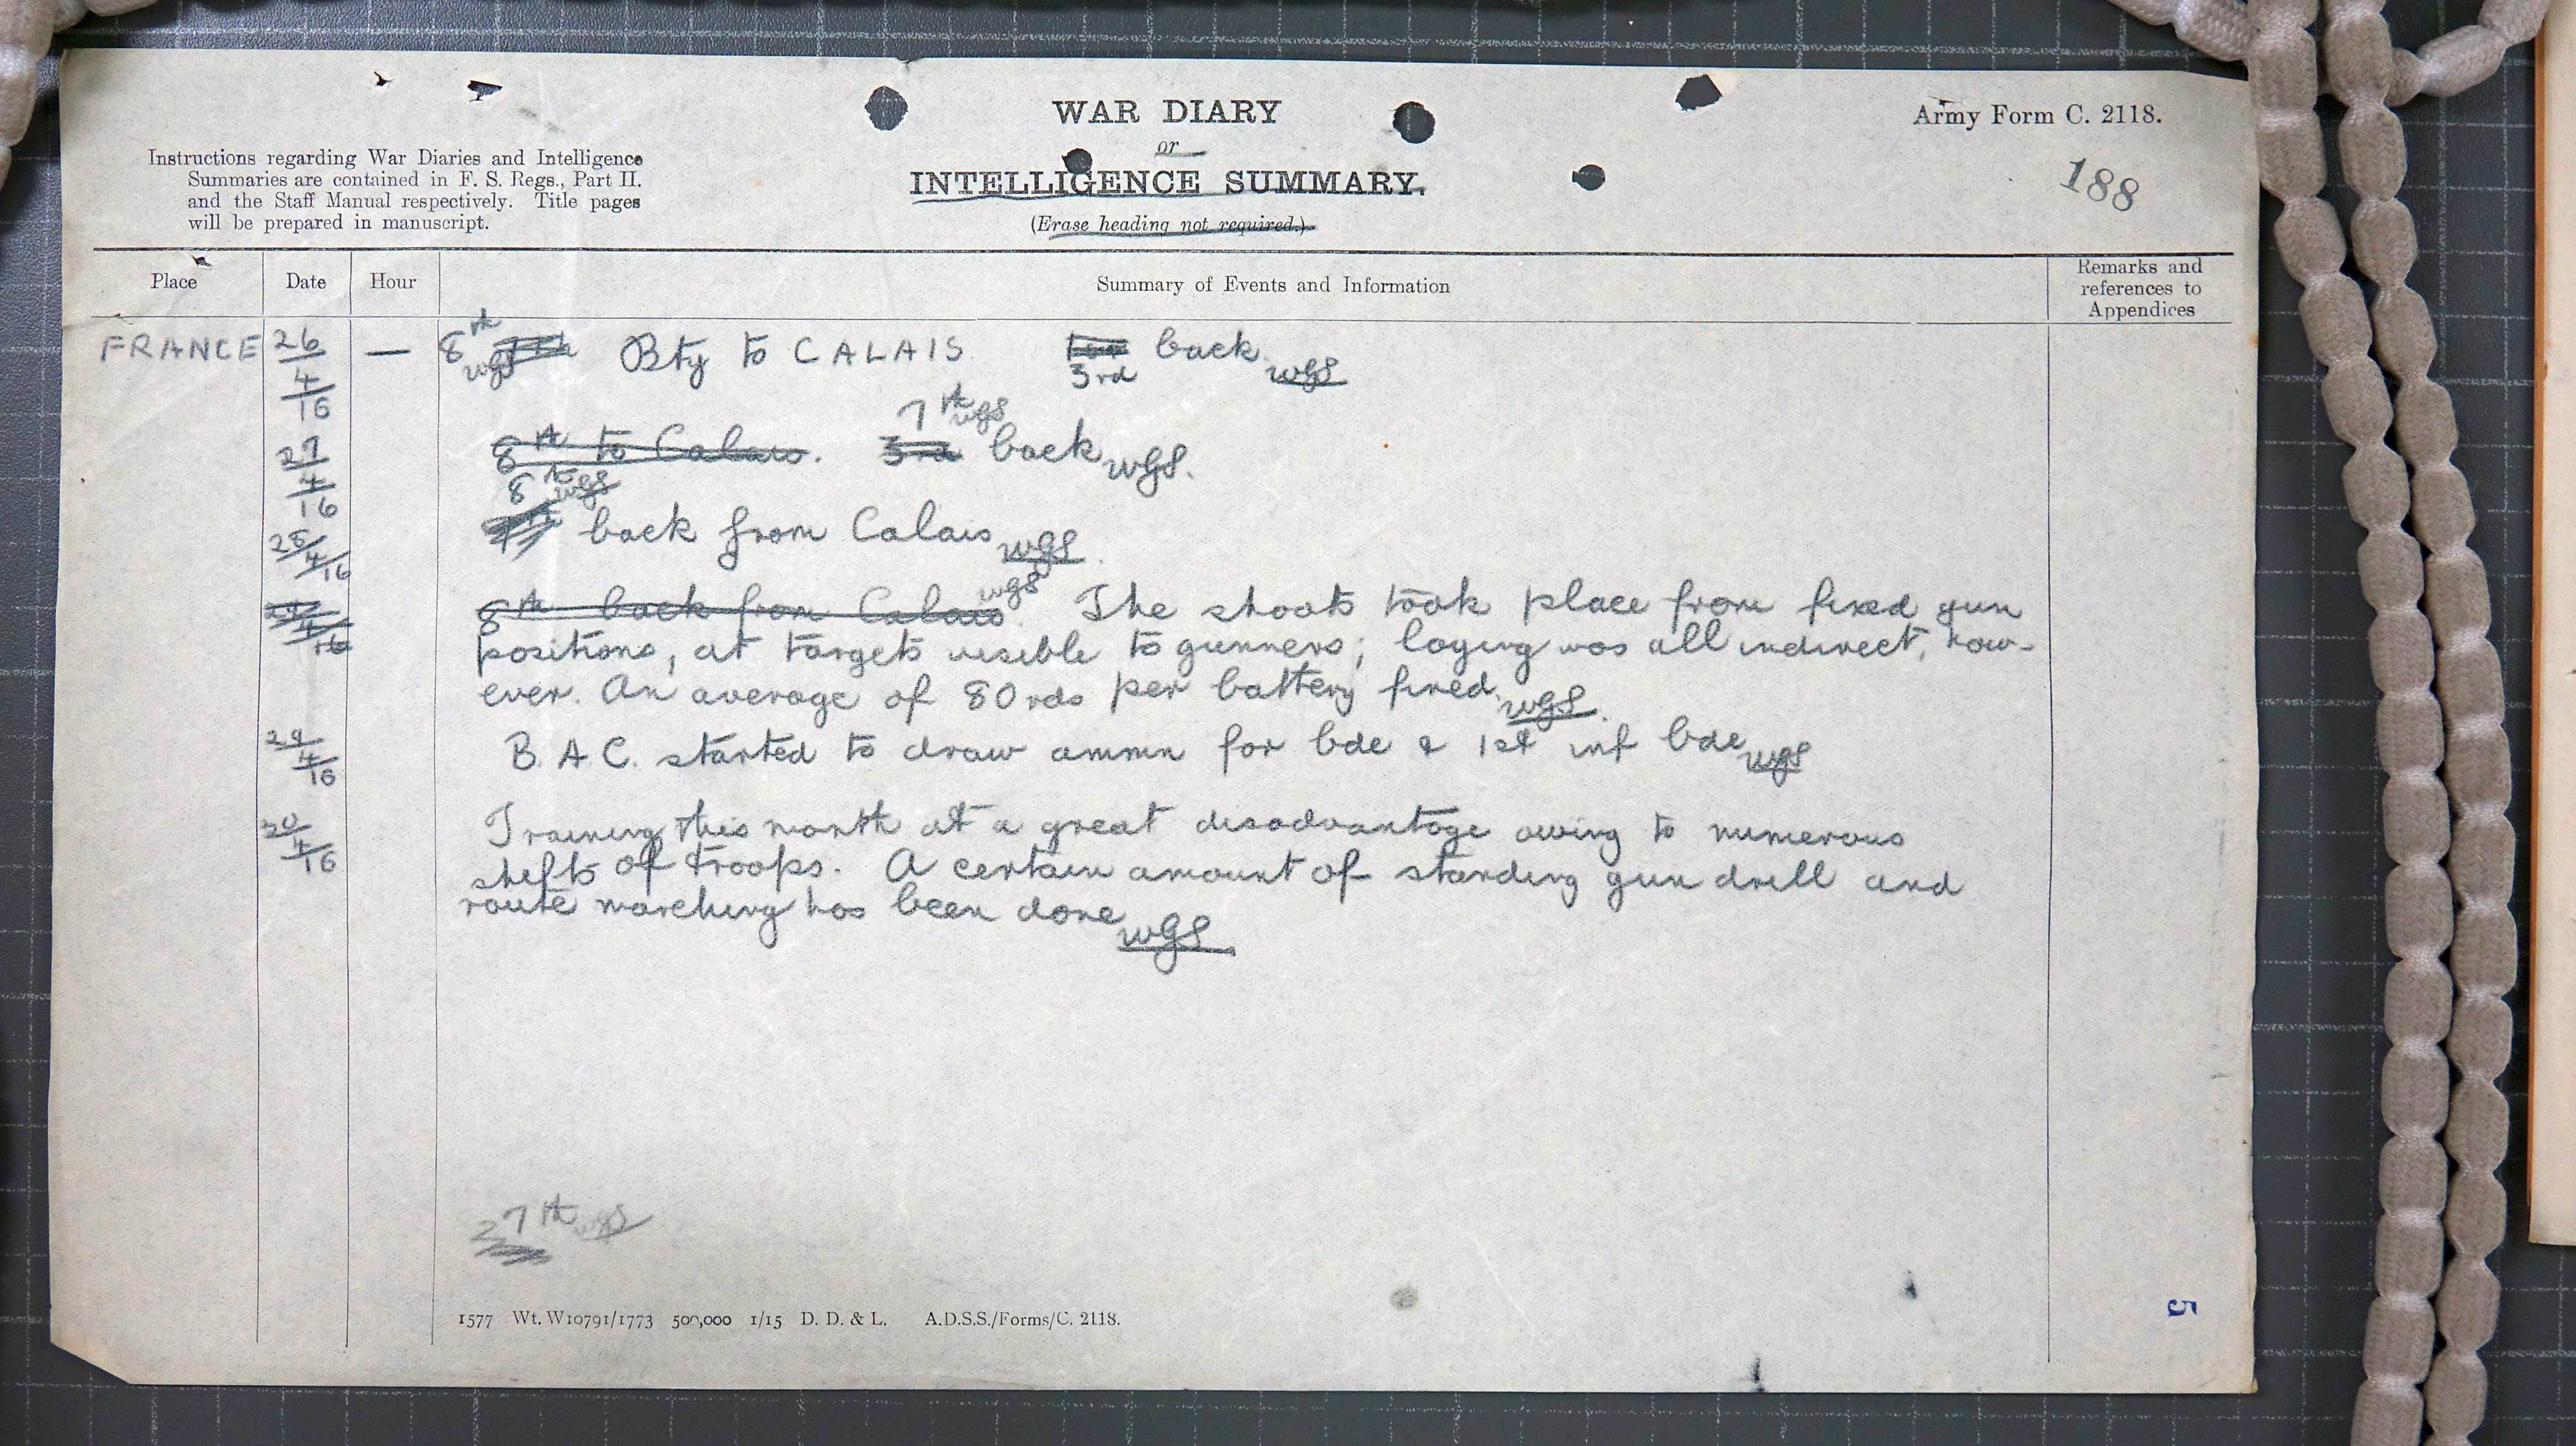 WAR DIARY
or
INTELLIGENCE SUMMARY.
(Erase heading not required.)
Army Form C. 2118.
188
Instructions regarding War Diaries and Intelligence
Summaries are contained in F. S. Regs., Part II.
and the Staff Manual respectively. Title pages
will be prepared in manuscript.
Place Date Hour Summary of Events and Information Remarks and references to Appendices
FRANCE 26/4/16 — 8th wgs Bty to CALAIS 3rd back wgs
27/4/16 8th to Calais. 3rd 7th wgs back wgs.
28/4/16 8th wgs back from Calais wgs.
8th back from Calais wgs. The shoots took place from fixed gun
positions, at targets visible to gunners; laying was all indirect, how-
ever. An average of 80 rds per battery fired wgs.
29/4/16 B.A.C. started to draw ammn for bde & 1st inf bde wgs
30/4/16 Training this month at a great disadvantage owing to numerous
shifts of troops. A certain amount of standing gun drill and
route marching has been done wgs
27th wgs
1577 Wt. W10791/1773 500,000 1/15 D. D. & L. A.D.S.S./Forms/C. 2118.
5